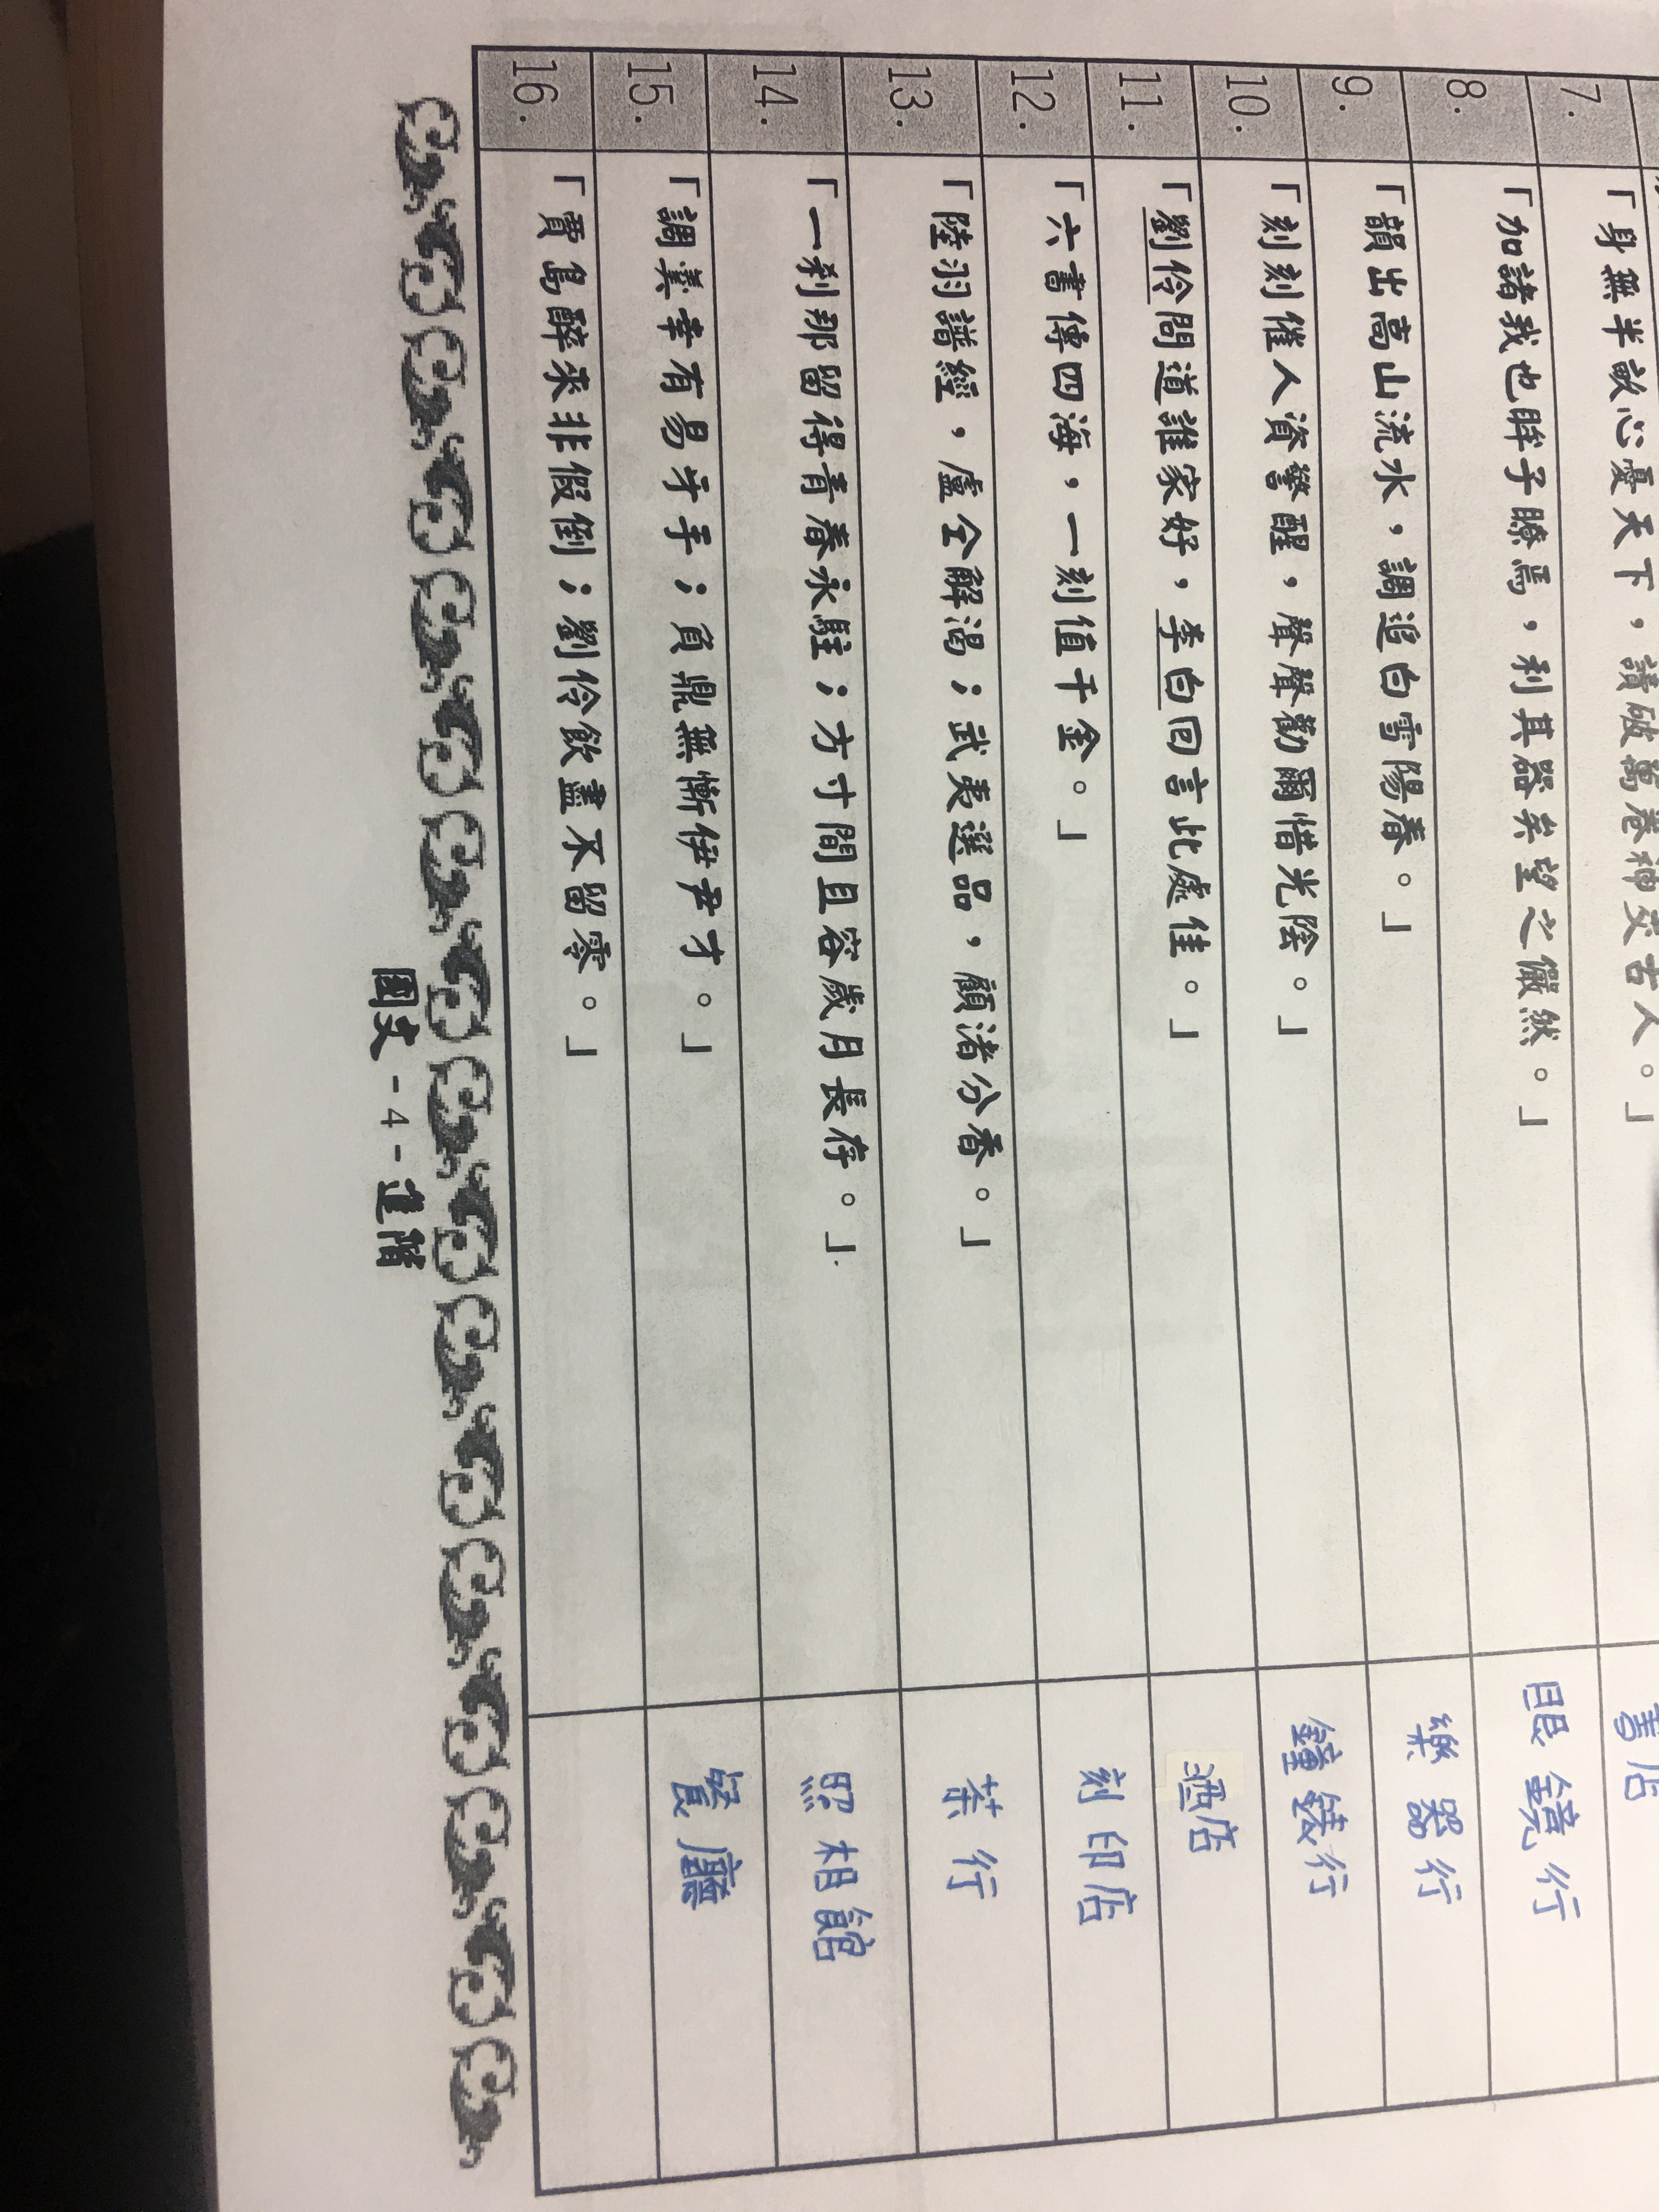 7.「身無半畝心憂天下，讀破萬卷神交古人。」 書店
8.「加諸我也眸子瞭焉，利其器矣望之儼然。」 眼鏡行
9.「韻出高山流水，調追白雪陽春。」 樂器行
10.「刻刻催人資警醒，聲聲勸爾惜光陰。」 鐘錶行
11.「劉伶問道誰家好，李白回言此處佳。」 酒店
12.「六書傳四海，一刻值千金。」 刻印店
13.「陸羽譜經，盧仝解渴；武夷選品，顧渚分香。」 茶行
14.「一剎那留得青春永駐；方寸間且容歲月長存。」 照相館
15.「調羹幸有易牙手；負鼎無慚伊尹才。」 餐廳
16.「賈島醉來非假倒；劉伶飲盡不留零。」
國文-4-進階